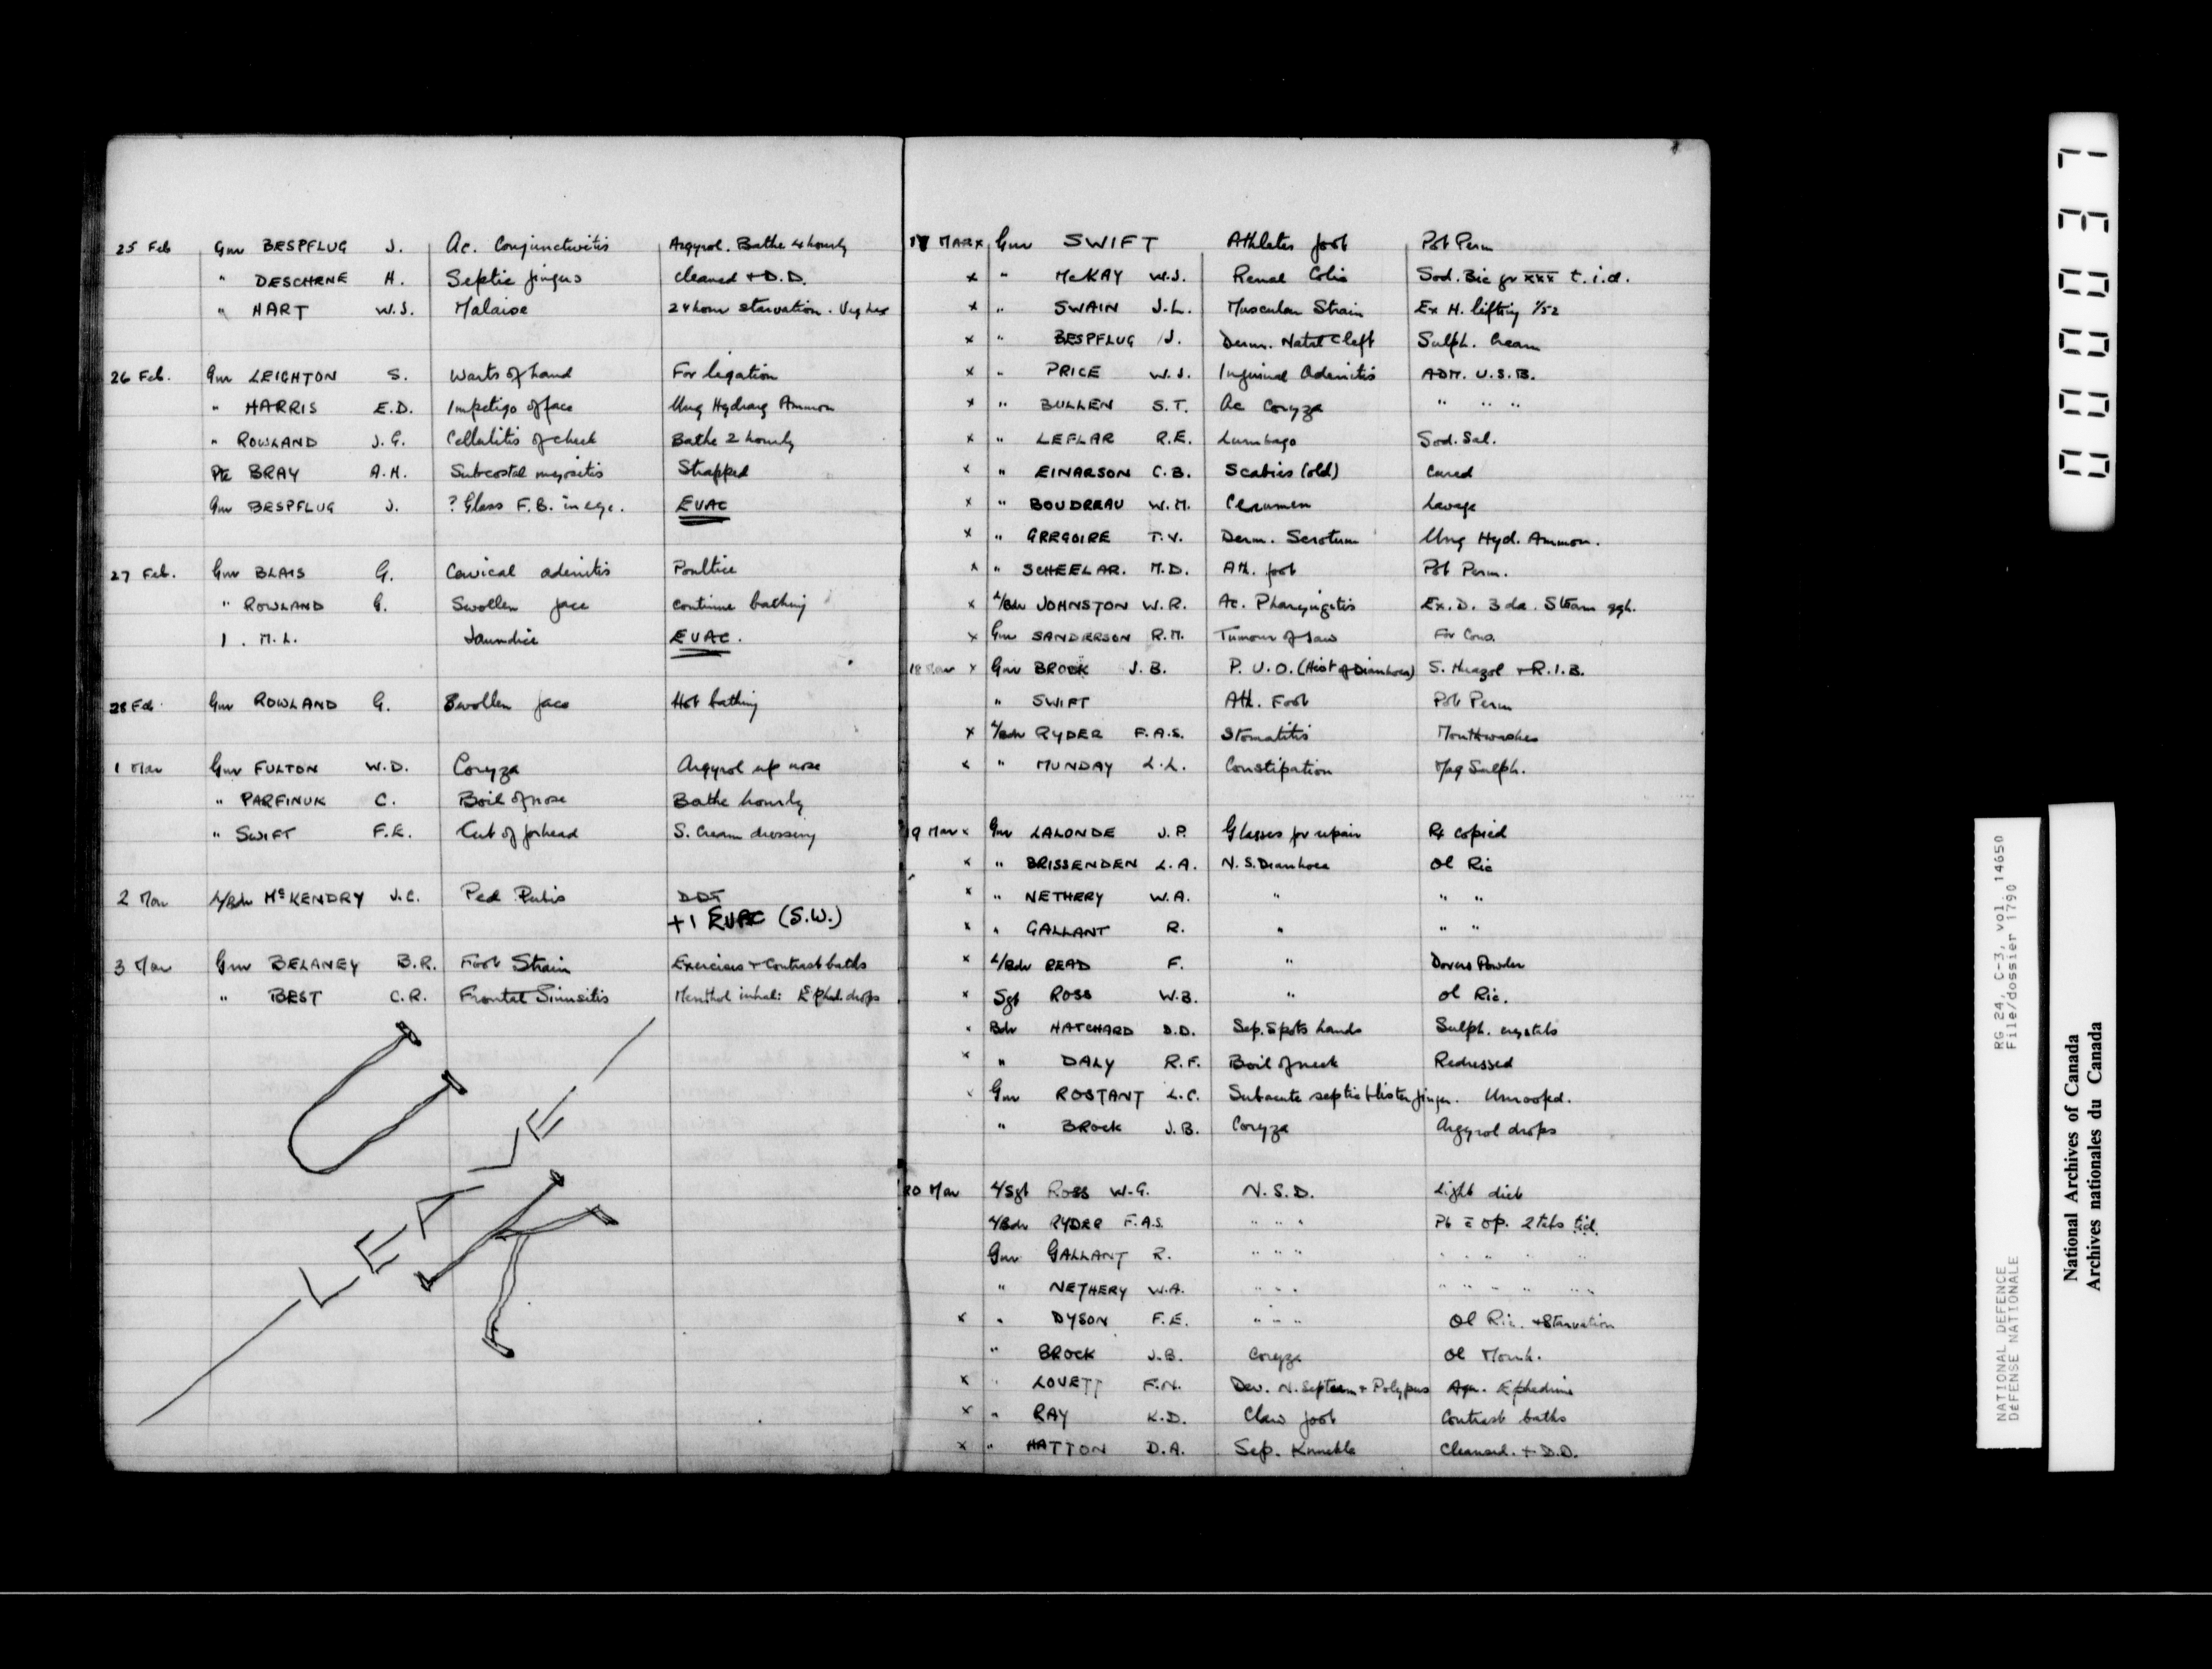 25 Feb Gnr BESPFLUG J. Ac. Conjunctivitis Argyrol. Bathe 4 hourly
" DESCHRNE H. Septic fingers cleaned + D.D.
" HART W.J. Malaise 24 hour starvation.
26 Feb. Gnr LEIGHTON S. Warts of hand For ligation
" HARRIS E.D. Impetigo of face Ung Hydrarg Ammon
" ROWLAND J.G. Cellulitis of cheek Bathe 2 hourly
Pte BRAY A.H. Subcostal myositis Strapped
Gnr BESPFLUG J. ? Glass F.B. in eye. EVAC
27 Feb. Gnr BLAIS G. Cervical adenitis Poultice
" ROWLAND G. Swollen face continue bathing
1 . M.L. Jaundice EVAC.
28 Feb Gnr ROWLAND G. Swollen face Hot bathing
1 Mar Gnr FULTON W.D. Coryza Argyrol up nose
" PARFINUK C. Boil of nose Bathe hourly
" SWIFT F.E. Cut of forhead S. Cream dressing
2 Mar L/Bdr McKENDRY J.C. Ped. Pubis DDT
+1 EVAC (S.W.)
3 Mar Gnr BELANEY B.R. Foot Strain Exercises + Contrast baths
" BEST C.R. Frontal Sinusitis Menthol inhal: Ephed. drops
LEAVE
17 MAR x Gnr SWIFT Athletes foot Pot Perm
x " McKAY W.J. Renal Colic Sod. Bic gr xxx t.i.d.
x " SWAIN J.L. Muscular Strain Ex H. lifting 1/52
x " BESPFLUG J. Derm. Natal Cleft Sulph. Cream
x " PRICE W.J. Inguinal Adenitis ADM. U.S.B.
x " BULLEN S.T. Ac Coryza " " "
x " LEFLAR R.E. Lumbago Sod. Sal.
x " EINARSON C.B. Scabies (old) Cured
x " BOUDREAU W.M. Cerumen Lavage
x " GREGOIRE T.V. Derm. Scrotum Ung Hyd. Ammon.
x " SCHEELAR. M.D. Ath. foot Pot Perm.
x L/Bdr JOHNSTON W.R. Ac. Pharyngitis Ex. D. 3 da. Steam ggh.
x Gnr SANDERSON R.M. Tumour of Jaw For Cons.
18 Mar x Gnr BROCK J.B. P.U.O. (Hist of Diarrhoea) S. thiazol + R.I.B.
" SWIFT Ath. Foot Pot Perm
x L/Bdr RYDER F.A.S. Stomatitis Mouthwashes
x " MUNDAY L.L. Constipation Mag Sulph.
19 Mar x Gnr LALONDE J.P. Glasses for repair Rx copied
x " BRISSENDEN L.A. N.S. Diarrhoea Ol Ric
x " NETHERY W.A. " " "
x " GALLANT R. " " "
x L/Bdr READ F. " Dovers Powder
x Sgt ROSS W.B. " Ol Ric.
x Bdr HATCHARD D.D. Sep. Spots hands Sulph. crystals
x " DALY R.F. Boil of neck Redressed
x Gnr ROSTANT L.C. Subacute septic blister finger. Unroofed.
" BROCK J.B. Coryza Argyrol drops
20 Mar L/Sgt ROSS W.G. N.S.D. Light diet
L/Bdr RYDER F.A.S. " " " Pb c̄ op. 2 tabs tid.
Gnr GALLANT R. " " " " " " " "
" NETHERY W.A. " " " " " " " "
x " DYSON F.E. " " " Ol Ric. + Starvation
" BROCK J.B. Coryza Ol Morrh.
x " LOVETT F.N. Dev. N. Septum + Polypus Aqu. Ephedrine
x " RAY K.D. Claw foot Contrast baths
x " HATTON D.A. Sep. Knuckle Cleansed. + D.D.
000037
RG 24, C-3, vol. 14650
File/dossier 1790
NATIONAL DEFENCE
DÉFENSE NATIONALE
National Archives of Canada
Archives nationales du Canada